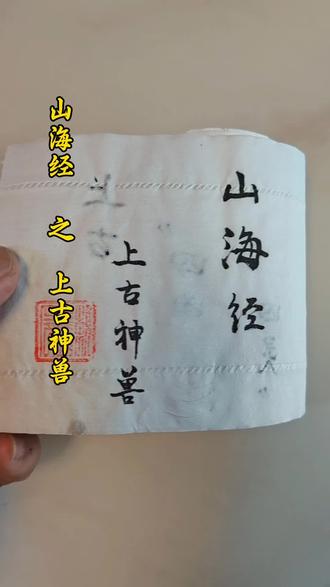 山海经 之 上古神兽
山海经
上古神兽